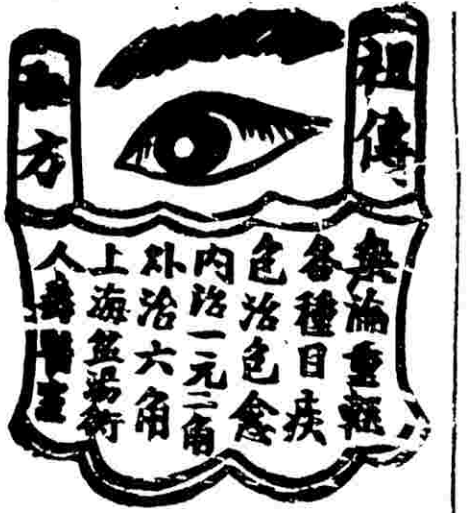 祖傳
秘方
無論重輕
各種目疾
包治包愈
內治一元二角
外治六角
上海盆湯衖
人壽